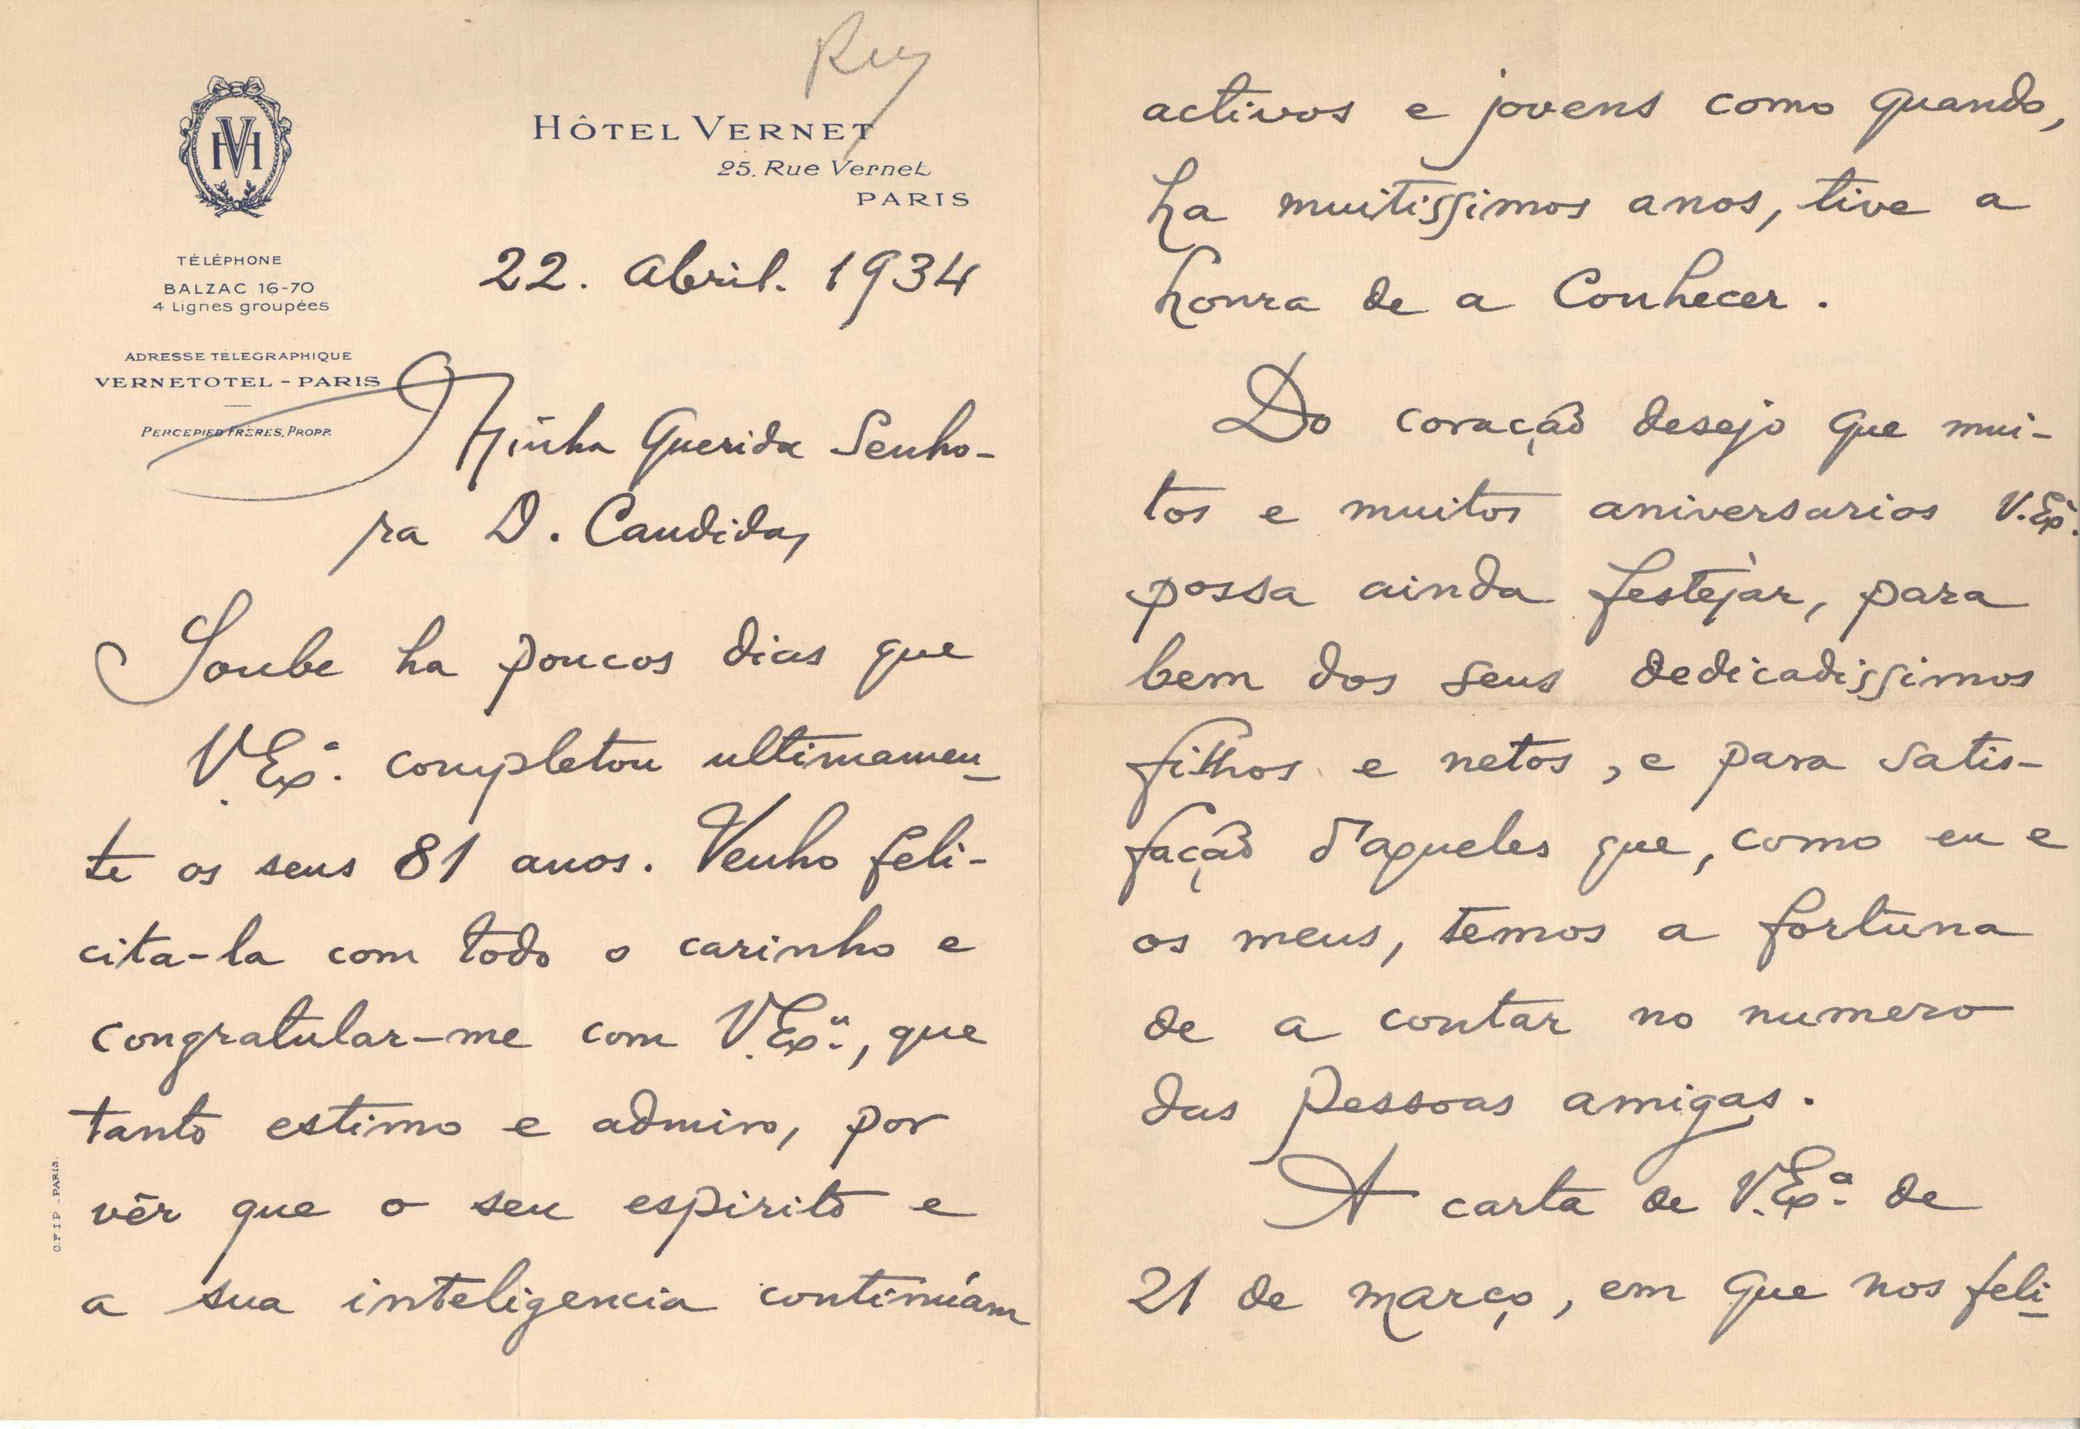 Ruy
HÔTEL VERNET
25. Rue Vernet
PARIS
VH
TÉLÉPHONE
BALZAC 16-70
4 Lignes groupées
ADRESSE TÉLÉGRAPHIQUE
VERNETOTEL - PARIS
PERCEPIED FRÈRES, PROPR.
22. Abril. 1934
Minha Querida Senho-
ra D. Candida,
Soube ha poucos dias que
V. Exª. completou ultimamen-
te os seus 81 anos. Venho feli-
cita-la com todo o carinho e
congratular-me com V. Exª., que
tanto estimo e admiro, por
vêr que o seu espirito e
a sua inteligencia continúam
O.F.I.P. - PARIS.
activos e jovens como quando,
ha muitissimos anos, tive a
honra de a Conhecer.
Do coração desejo que mui-
tos e muitos aniversarios V. Exª.
possa ainda festejar, para
bem dos seus dedicadissimos
filhos e netos, e para satis-
fação d'aqueles que, como eu e
os meus, temos a fortuna
de a contar no numero
das pessoas amigas.
A carta de V. Exª. de
21 de março, em que nos feli-